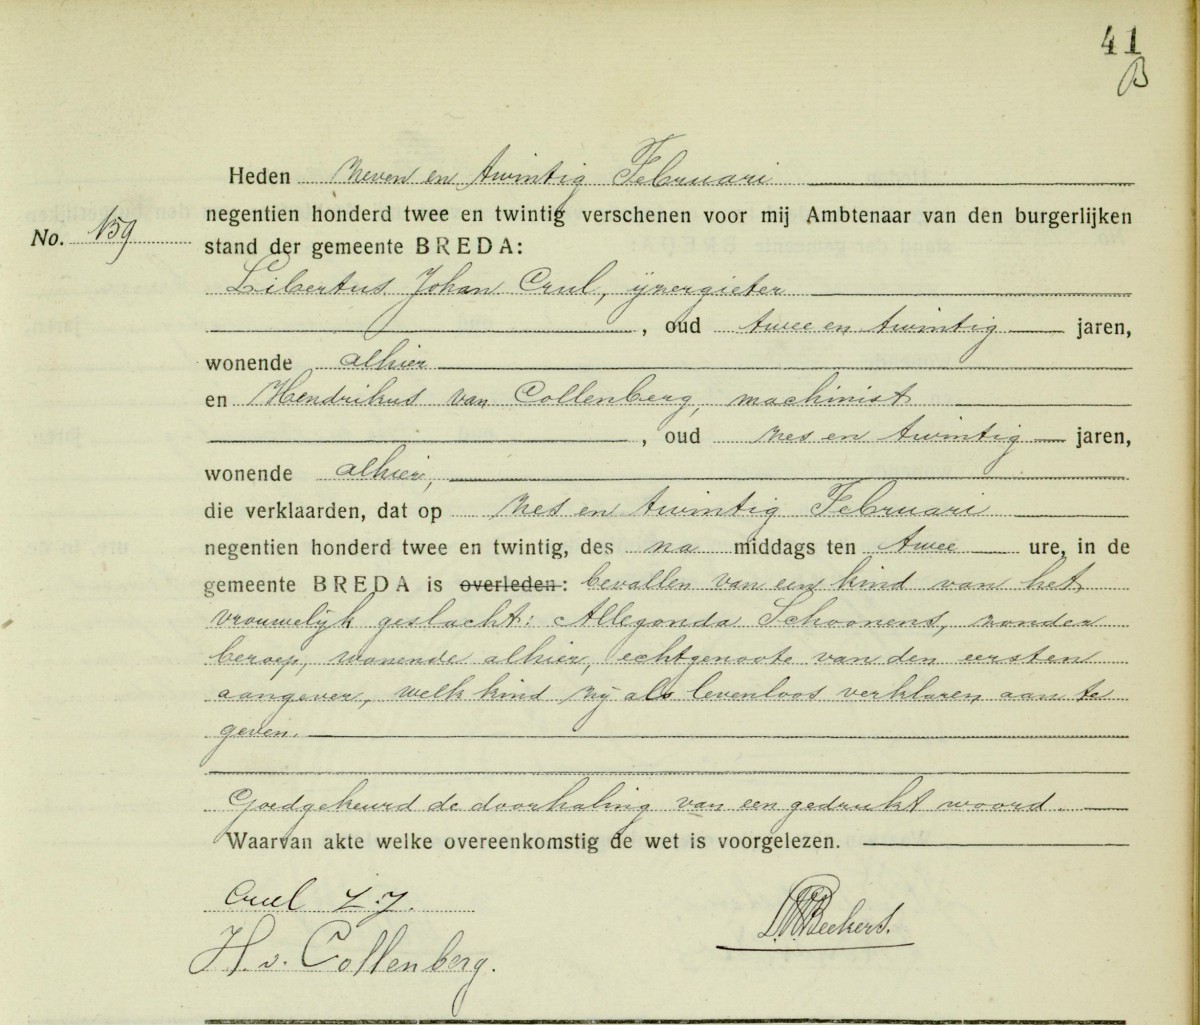 41
B
Heden zeven en twintig Februari
No. 159
negentien honderd twee en twintig verschenen voor mij Ambtenaar van den burgerlijken
stand der gemeente BREDA:
Libertus Johan Crul, ijzergieter
, oud twee en twintig jaren,
wonende alhier
en Hendrikus van Collenberg, machinist
, oud zes en twintig jaren,
wonende alhier,
die verklaarden, dat op zes en twintig Februari
negentien honderd twee en twintig, des na middags ten twee ure, in de
gemeente BREDA is overleden: bevallen van een kind van het
vrouwelijk geslacht: Allegonda Schoonens, zonder
beroep, wonende alhier, echtgenoote van den eersten
aangever, welk kind zij als levenloos verklaren aan te
geven.
Goedgekeurd de doorhaling van een gedrukt woord.
Waarvan akte welke overeenkomstig de wet is voorgelezen.
Crul L.J.
H. v. Collenberg.
Beckers.